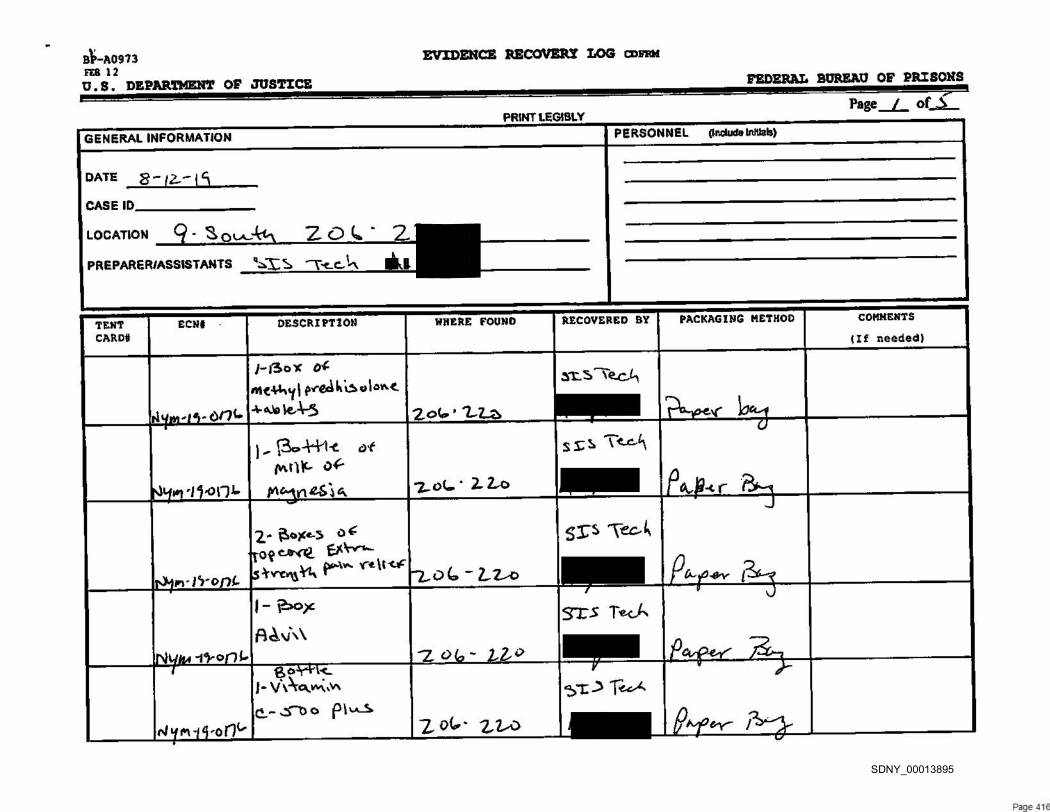 BP-A0973
EVIDENCE RECOVERY LOG CDFRM
FEB 12
U.S. DEPARTMENT OF JUSTICE
FEDERAL BUREAU OF PRISONS
Page 1 of 5
PRINT LEGIBLY
GENERAL INFORMATION
PERSONNEL (Include Initials)
DATE 8-12-19
CASE ID
LOCATION 9-South 206-2
PREPARER/ASSISTANTS SIS Tech
TENT CARD# ECN# DESCRIPTION WHERE FOUND RECOVERED BY PACKAGING METHOD COMMENTS (If needed)
1-Box of
methylpredhisolone
tablets
Nym-19-0176 206-220 SIS Tech Paper bag
1-Bottle of
Milk of
Magnesia
Nym-19-0176 206-220 SIS Tech Paper Bag
2-Boxes of
Topcare Extra
strength pain relief
Nym-19-0176 206-220 SIS Tech Paper Bag
1-Box
Advil
Nym-19-0176 206-220 SIS Tech Paper Bag
Bottle
1-Vitamin
C-500 Plus
Nym-19-0176 206-220 SIS Tech Paper Bag
SDNY_00013895
Page 416